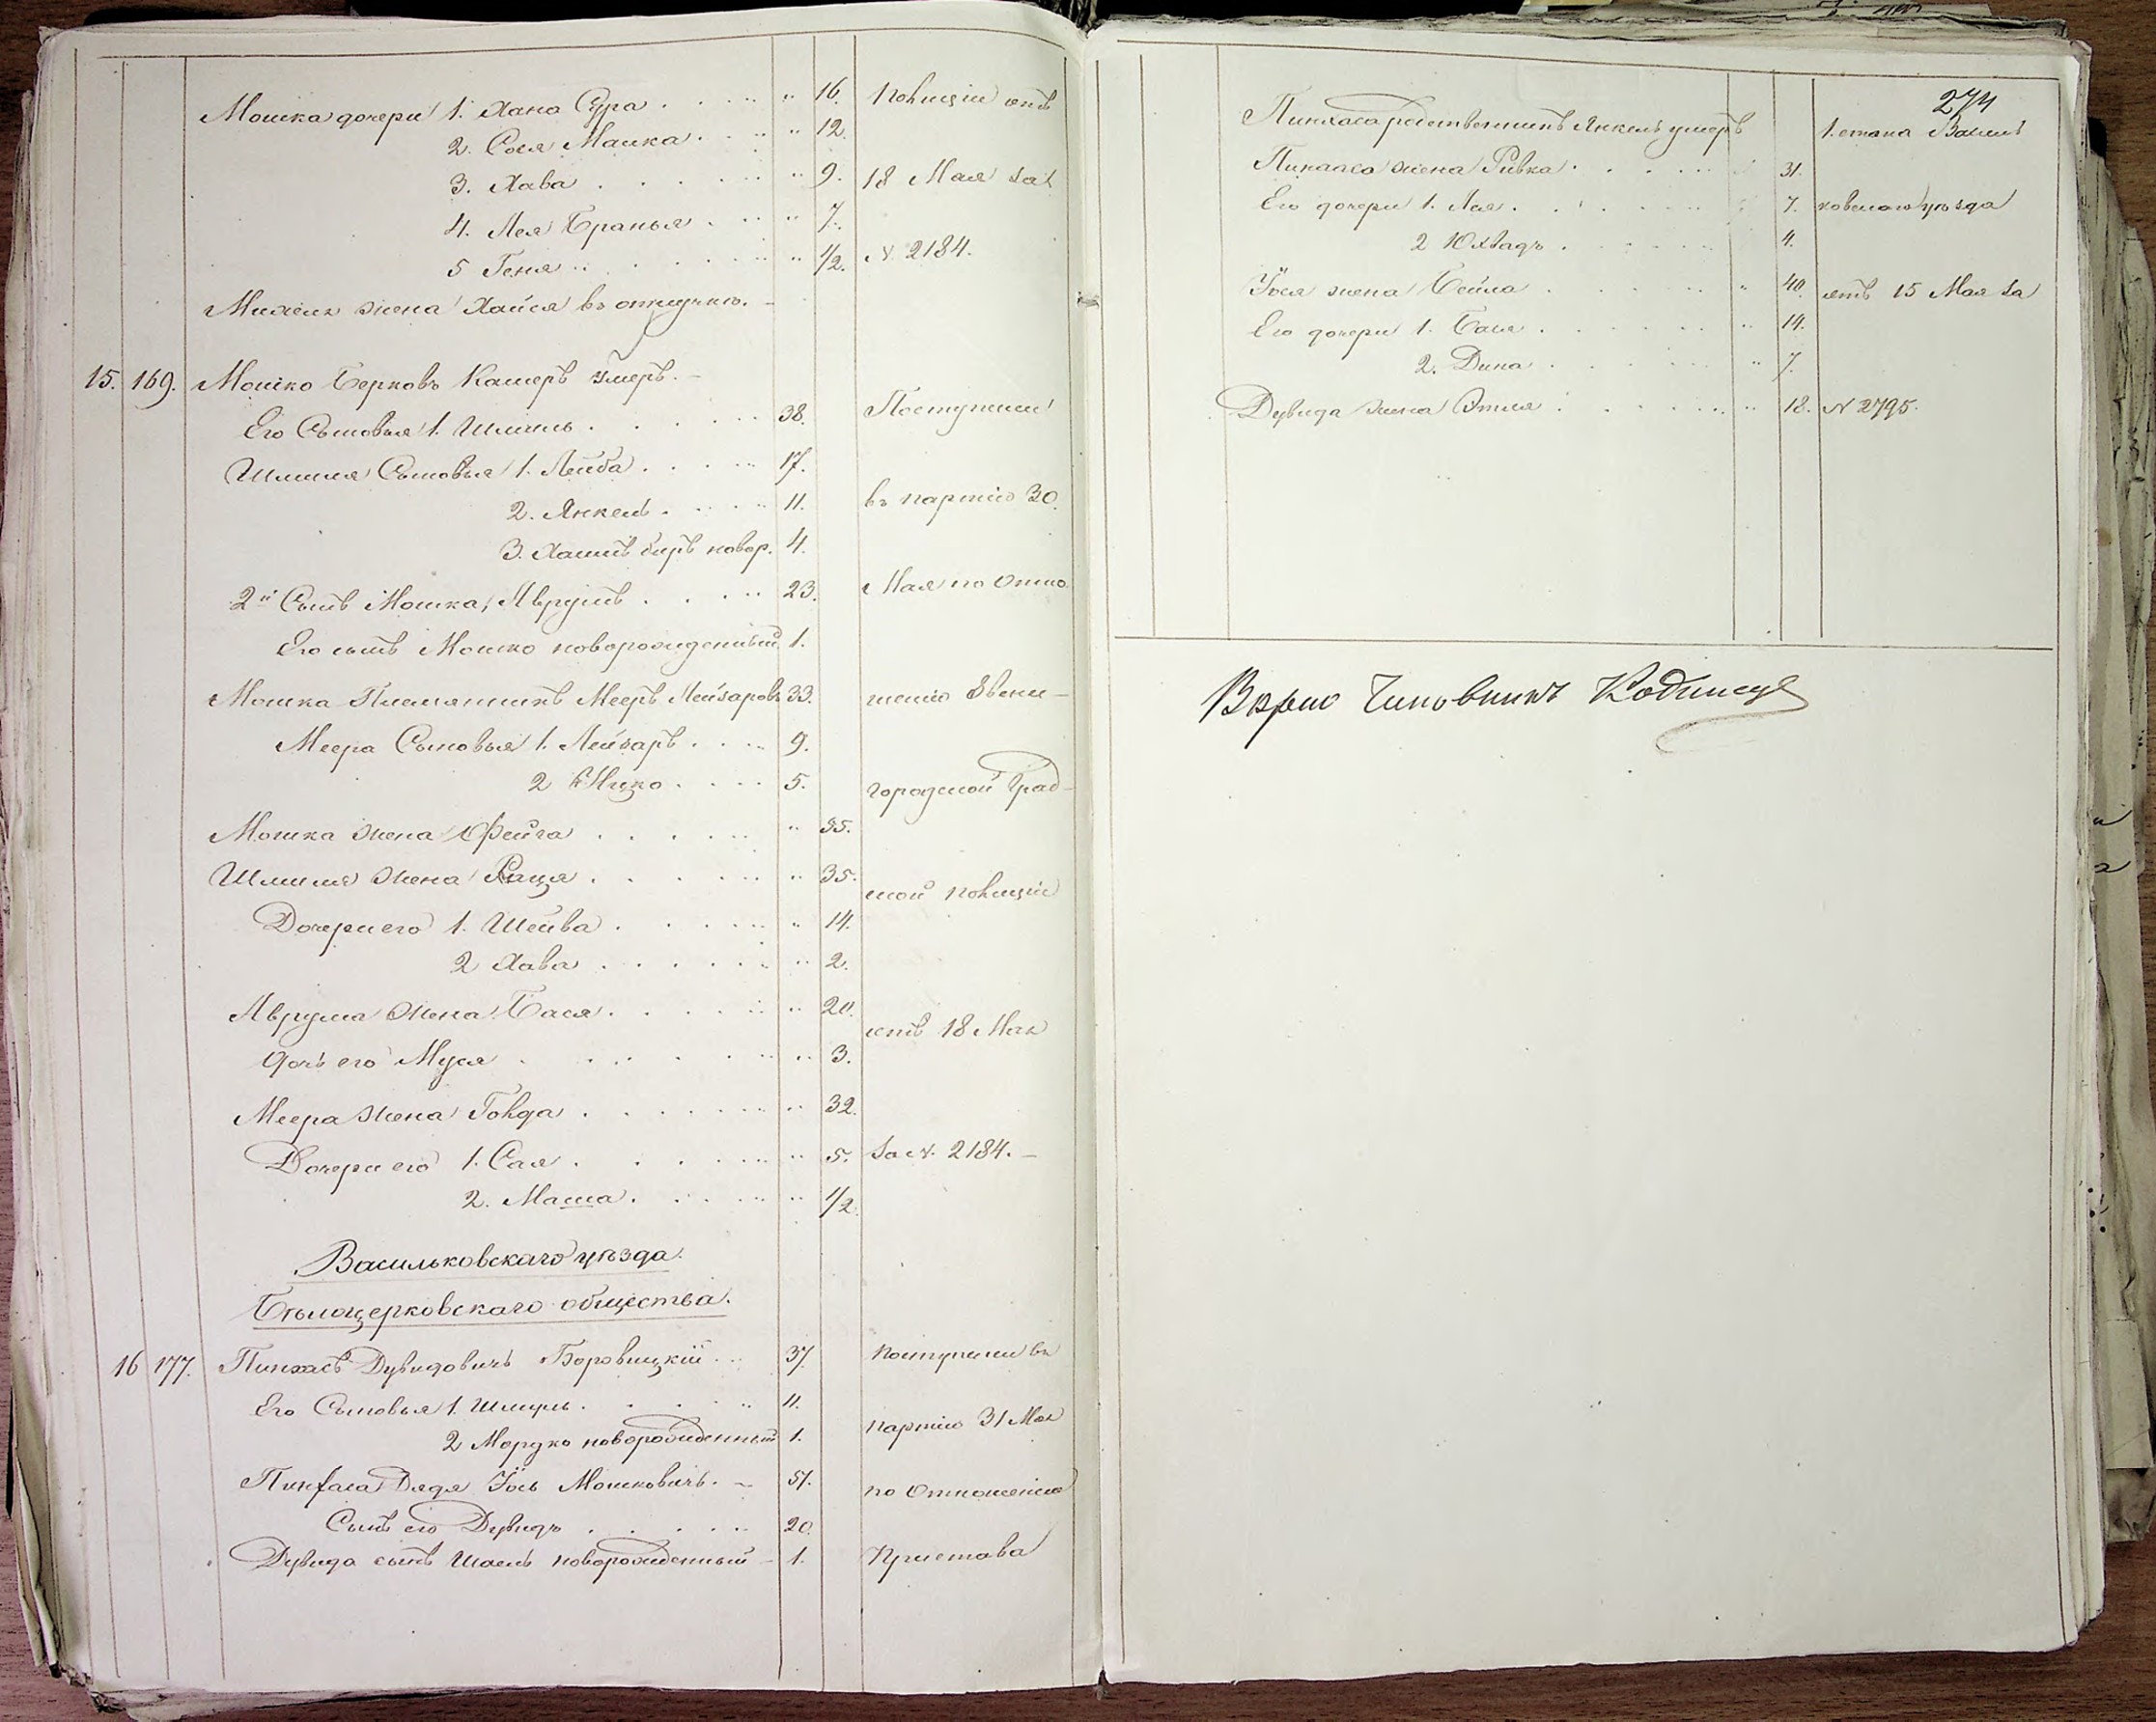 Мошка дочери 1. Хана Сура . . . . " 16. Полиціи отъ
2. Сося Машка . . . " 12.
3. Хава . . . . . " 9. 18 Мая за
4. Лея Бранья . . . " 7.
5 Геня . . . . . " 1/2. N. 2184.
Михеля жена Хайся въ отлучкѣ. –
15. 169. Мошко Берковъ Кашеръ умеръ. –
Его Сыновья 1. Шмиль . . . . . 38. Поступили
Шмиля Сыновья 1. Лейба . . . . 17.
2. Янкель . . . . 11. въ партію 30.
3. новор. 4.
2й Сынъ Мошка, Аврумъ . . . . 23. Мая по Отно
Его сынъ Мошко новорожденный 1.
Мошка Племянникъ Мееръ Лейзаровъ 33. шенію Звени–
Меера Сыновья 1. Лейзаръ . . . . 9.
2 Ицко . . . . 5. городской Град–
Мошка жена Фейга . . . . . . " 35.
Шмиля жена Раца . . . . . . " 35. ской полиціи
Дочери его 1. Шейва . . . . . " 14.
2 Хава . . . . . . " 2.
Аврума жена Бася . . . . . " 20. отъ 18 Мая
дочь его Муся . . . . . . " 3.
Меера жена Голда . . . . . . " 32.
Дочери его 1. Сая . . . . . . " 5. за N. 2184. –
2. Маша . . . . . " 1/2.
Васильковскаго уѣзда.
Бѣлоцерковскаго общества.
16 177. Пинхасъ Дувидовичъ Боровицкій . . 37 поступили въ
Его Сыновья 1. Шмуль . . . . . 11.
2 Мордко новорожденный 1. партію 31 Мая
Пинхаса Дядя Іось Мошковичъ. – 51. по Отношенію
Сынъ его Дувидъ . . . . . 20.
Дувида сынъ Шаель новорожденный – 1. Пристава
274
Пинхаса родственникъ Янкель умеръ 1. стана Василь
Пинхаса жена Ривка . . . . . 31.
Его дочери 1. Лея . . . . . . 7. ковскаго уѣзда
2 Юхвадъ . . . . . 4.
Іося жена Бейла . . . . . " 40. отъ 15 Мая за
Его дочери 1. Бася . . . . . " 14.
2. Дина . . . . . " 7.
Дувида жена Этля . . . . . " 18. N 2795.
Вѣрно Чиновникъ